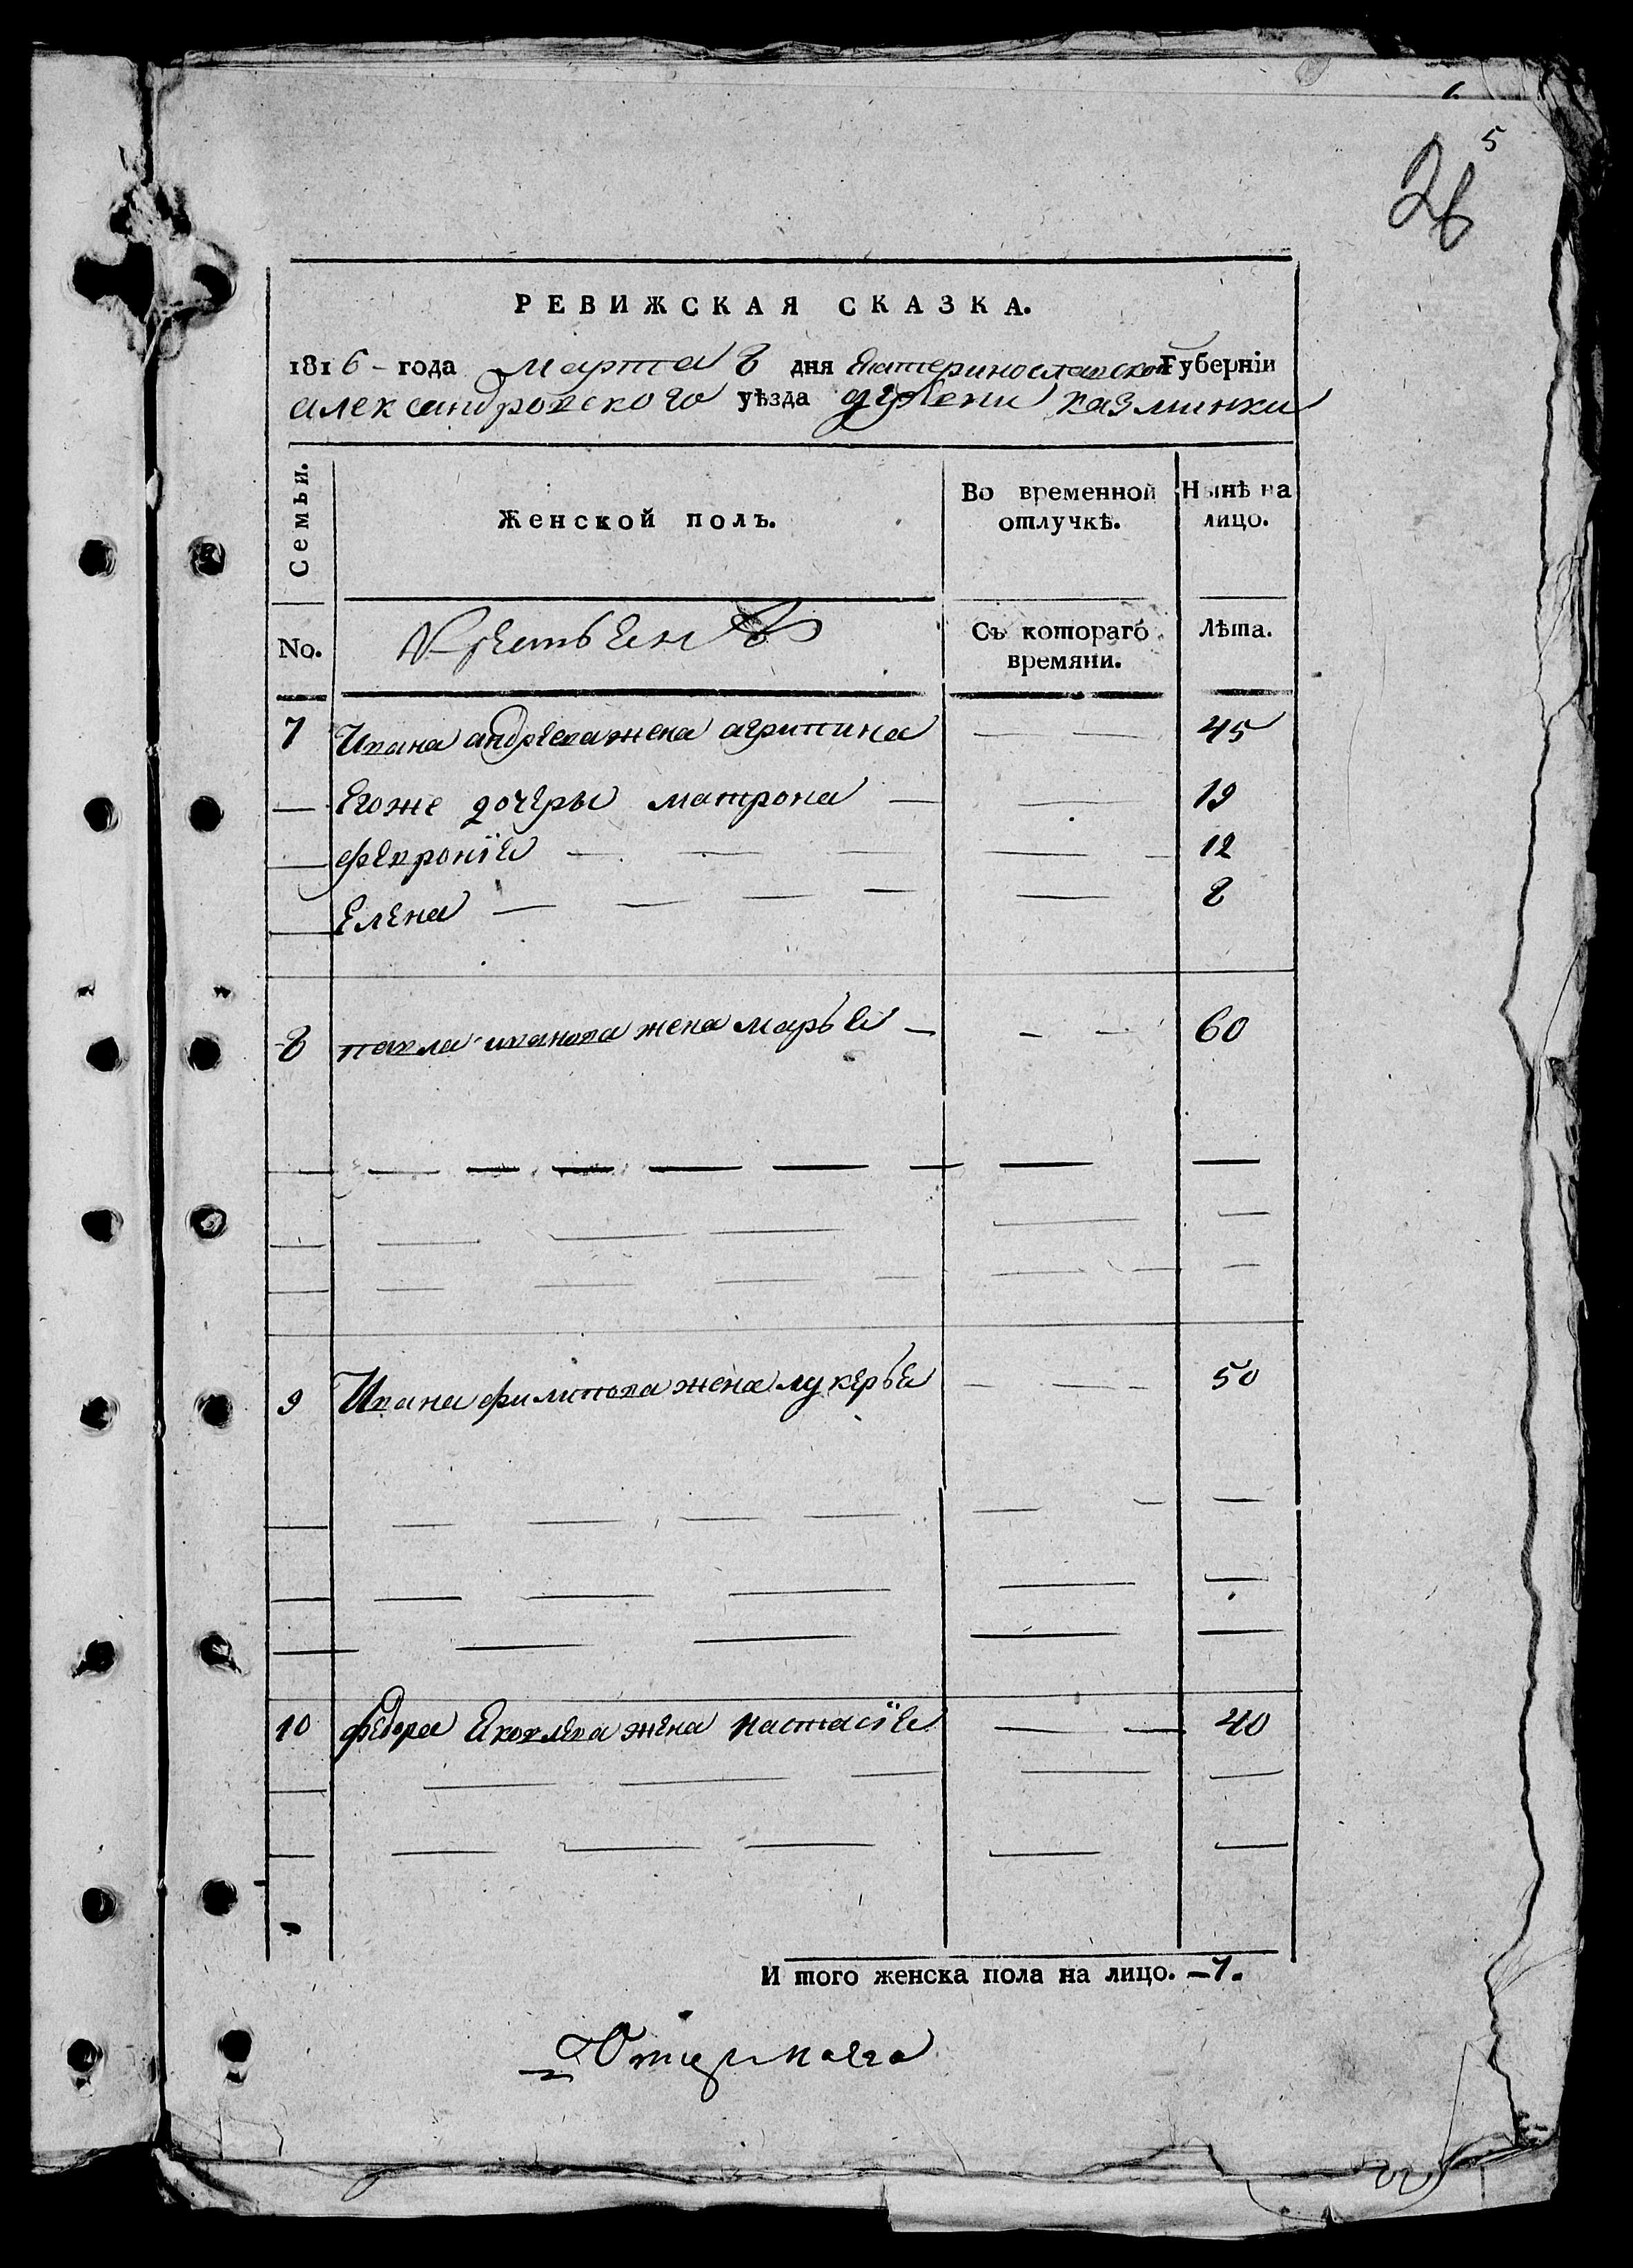 6
5
26
РЕВИЖСКАЯ СКАЗКА.
1816 - года Марта 8 дня Екатеринославской Губернїи
александровского уѣзда дервни казминки
Семьи. Женской полъ. Во временной отлучкѣ. Нынѣ на лицо.
No. Крестьянъ Съ котораго времяни. Лѣта.
7 Ивана андреева жена агрипина — — 45
— Егоже дочеры матрона — — 19
— февронїя — — — — — 12
— Елена — — — — — 8
8 павла иванова жена марья — - - 60
9 Ивана филипова жена лукерья — - - 50
10 федора Яковлева жена настасїя — — 40
И того женска пола на лицо. — 7.